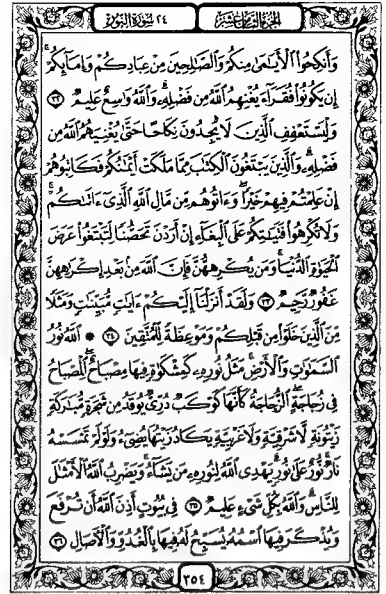 الجزء الثامن عشر
٢٤ سورة النور
وَأَنكِحُوا۟ ٱلْأَيَـٰمَىٰ مِنكُمْ وَٱلصَّـٰلِحِينَ مِنْ عِبَادِكُمْ وَإِمَآئِكُمْ ۚ
إِن يَكُونُوا۟ فُقَرَآءَ يُغْنِهِمُ ٱللَّهُ مِن فَضْلِهِۦ ۗ وَٱللَّهُ وَٰسِعٌ عَلِيمٌ ٣٢
وَلْيَسْتَعْفِفِ ٱلَّذِينَ لَا يَجِدُونَ نِكَاحًا حَتَّىٰ يُغْنِيَهُمُ ٱللَّهُ مِن
فَضْلِهِۦ ۗ وَٱلَّذِينَ يَبْتَغُونَ ٱلْكِتَـٰبَ مِمَّا مَلَكَتْ أَيْمَـٰنُكُمْ فَكَاتِبُوهُمْ
إِنْ عَلِمْتُمْ فِيهِمْ خَيْرًا ۖ وَءَاتُوهُم مِّن مَّالِ ٱللَّهِ ٱلَّذِىٓ ءَاتَىٰكُمْ ۚ
وَلَا تُكْرِهُوا۟ فَتَيَـٰتِكُمْ عَلَى ٱلْبِغَآءِ إِنْ أَرَدْنَ تَحَصُّنًا لِّتَبْتَغُوا۟ عَرَضَ
ٱلْحَيَوٰةِ ٱلدُّنْيَا ۚ وَمَن يُكْرِههُّنَّ فَإِنَّ ٱللَّهَ مِنۢ بَعْدِ إِكْرَٰهِهِنَّ
غَفُورٌ رَّحِيمٌ ٣٣ وَلَقَدْ أَنزَلْنَآ إِلَيْكُمْ ءَايَـٰتٍ مُّبَيِّنَـٰتٍ وَمَثَلًا
مِّنَ ٱلَّذِينَ خَلَوْا۟ مِن قَبْلِكُمْ وَمَوْعِظَةً لِّلْمُتَّقِينَ ٣٤ ۞ ٱللَّهُ نُورُ
ٱلسَّمَـٰوَٰتِ وَٱلْأَرْضِ ۚ مَثَلُ نُورِهِۦ كَمِشْكَوٰةٍ فِيهَا مِصْبَاحٌ ۖ ٱلْمِصْبَاحُ
فِى زُجَاجَةٍ ۖ ٱلزُّجَاجَةُ كَأَنَّهَا كَوْكَبٌ دُرِّىٌّ يُوقَدُ مِن شَجَرَةٍ مُّبَـٰرَكَةٍ
زَيْتُونَةٍ لَّا شَرْقِيَّةٍ وَلَا غَرْبِيَّةٍ يَكَادُ زَيْتُهَا يُضِىٓءُ وَلَوْ لَمْ تَمْسَسْهُ
نَارٌ ۚ نُّورٌ عَلَىٰ نُورٍ ۗ يَهْدِى ٱللَّهُ لِنُورِهِۦ مَن يَشَآءُ ۚ وَيَضْرِبُ ٱللَّهُ ٱلْأَمْثَـٰلَ
لِلنَّاسِ ۗ وَٱللَّهُ بِكُلِّ شَىْءٍ عَلِيمٌ ٣٥ فِى بُيُوتٍ أَذِنَ ٱللَّهُ أَن تُرْفَعَ
وَيُذْكَرَ فِيهَا ٱسْمُهُۥ يُسَبِّحُ لَهُۥ فِيهَا بِٱلْغُدُوِّ وَٱلْـَٔاصَالِ ٣٦
٣٥٤